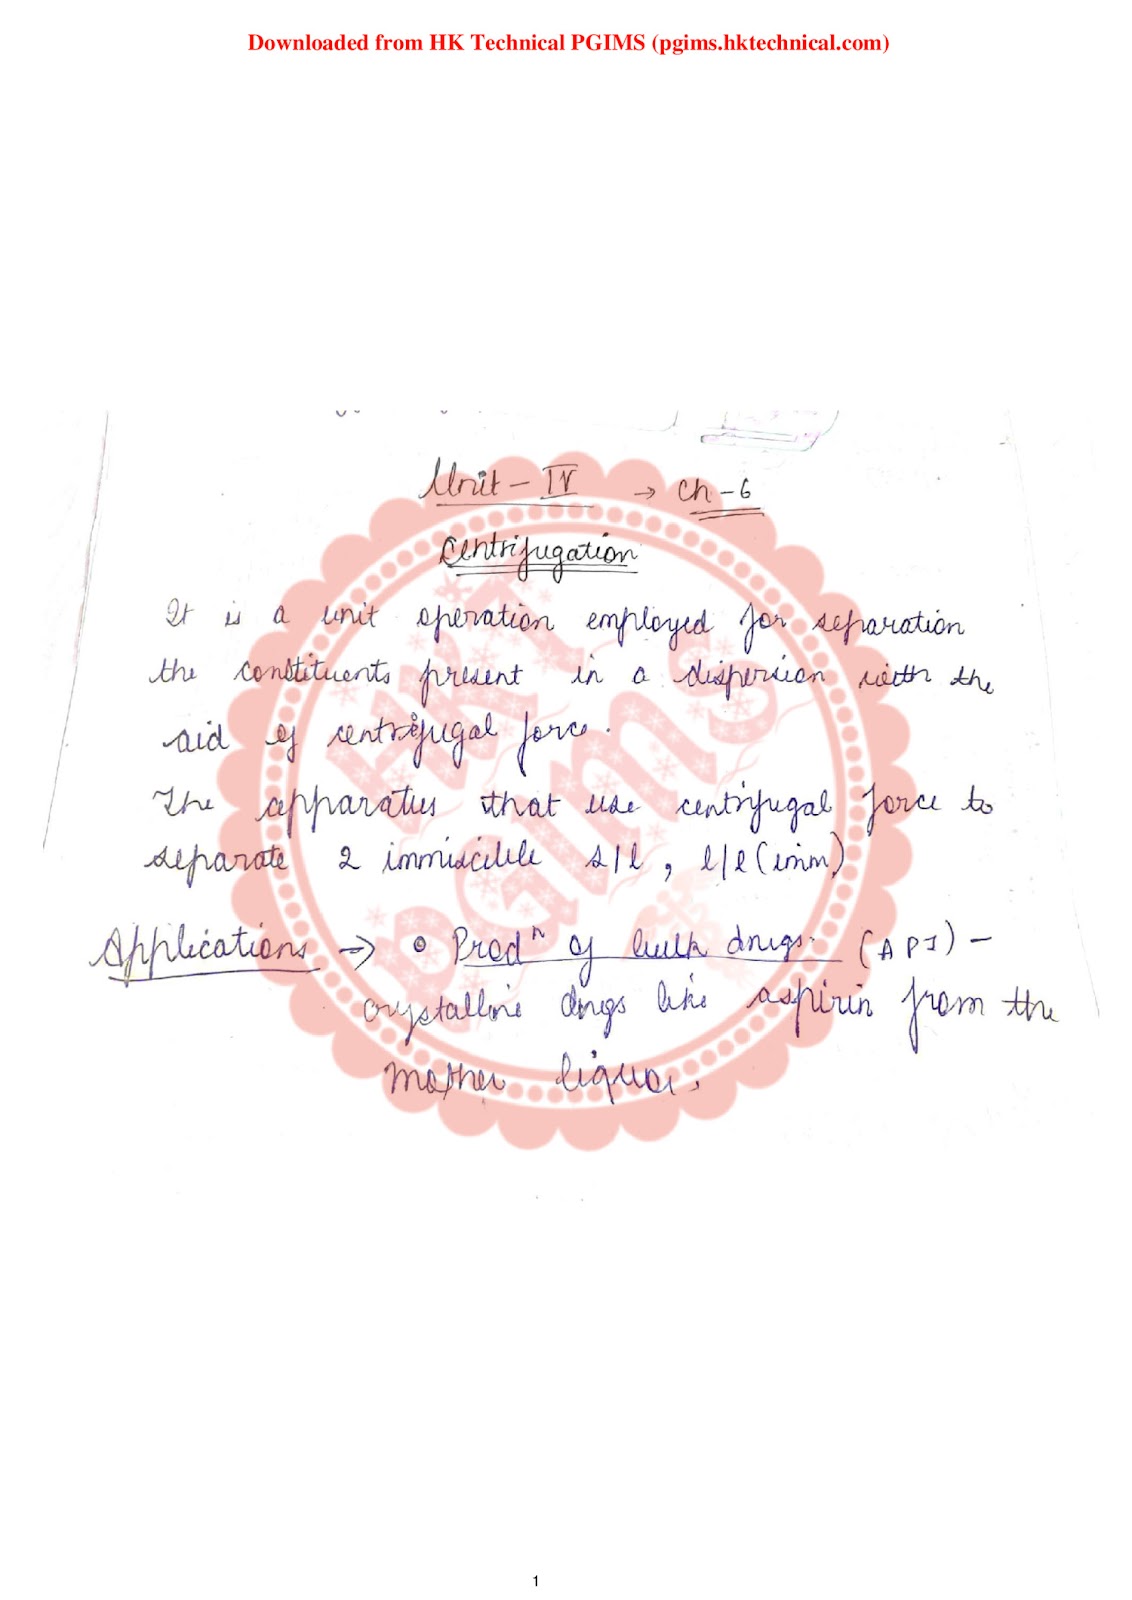 Downloaded from HK Technical PGIMS (pgims.hktechnical.com)
Unit - IV → Ch - 6
Centrifugation
It is a unit operation employed for separation
the constituents present in a dispersion with the
aid of centrifugal force.
The apparatus that use centrifugal force to
separate 2 immiscible s/l, l/l (imm)
Applications → • Prodⁿ of bulk drugs. (API) -
crystalline drugs like aspirin from the
mother liquor.
HKT
PGIMS
1